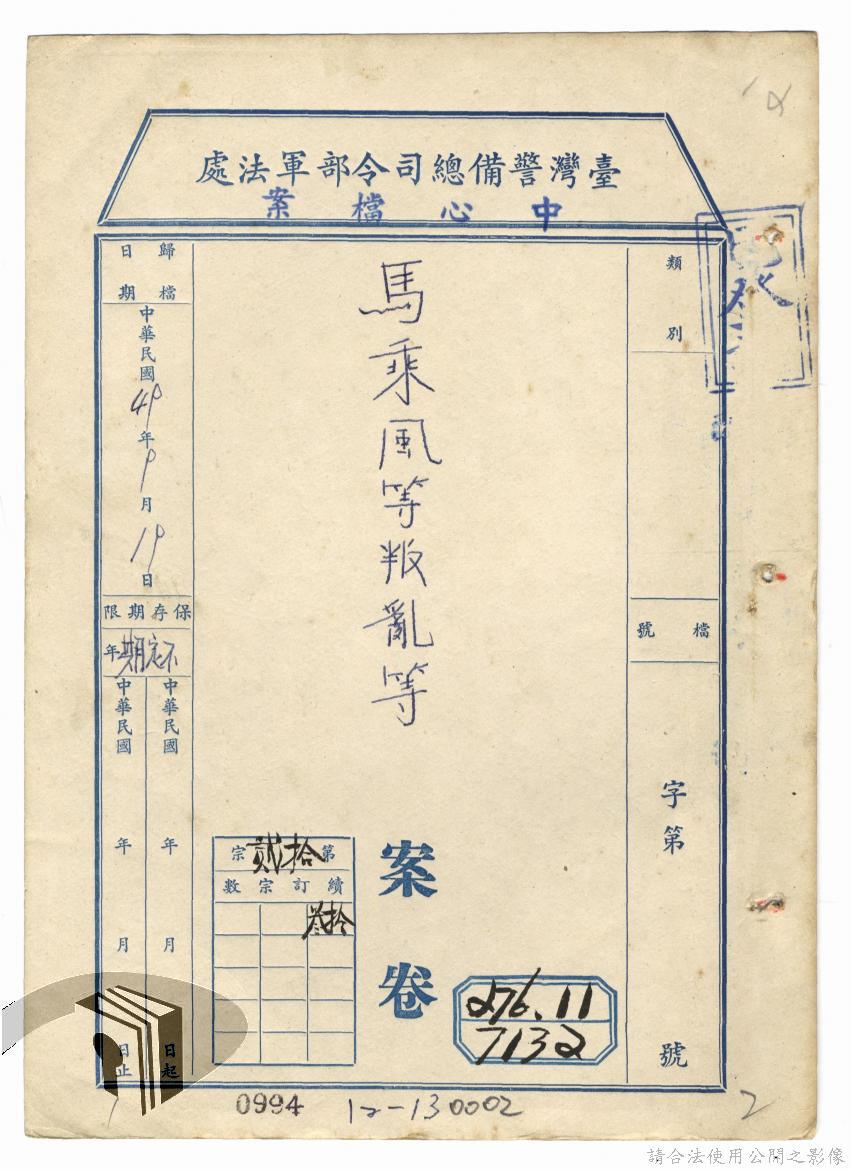 臺灣警備總司令部軍法處
中心檔案
類別
檔號
字第
號
馬乘風等叛亂等
案卷
276.11
7132
第拾貳宗
續訂宗數
拾叁
歸檔日期
中華民國49年9月19日
保存期限
不定期年
中華民國 年 月 日起
中華民國 年 月 日止
0994
12-130002
2
請合法使用公開之影像